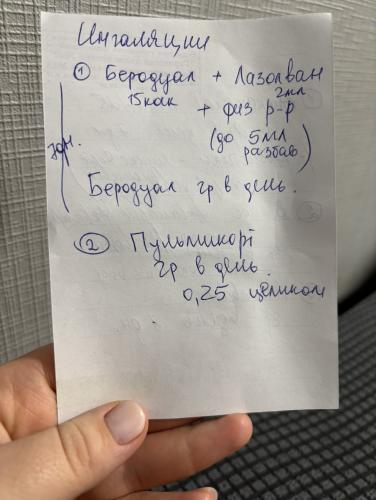 Ингаляции
① Беродуал + Лазолван
15 кап 2мл
+ физ р-р
(до 5мл
разбав)
Беродуал 2р в день.
② Пульмикорт
2р в день.
0,25 целиком